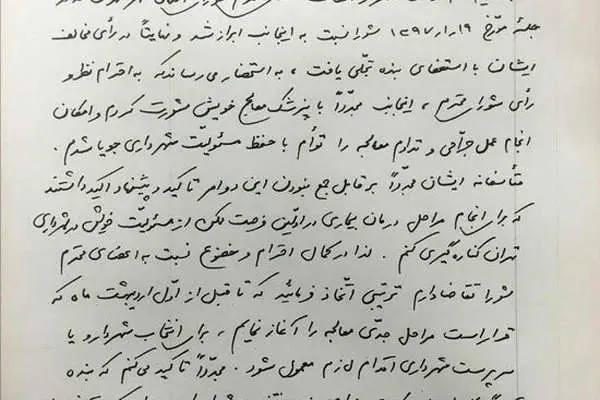 جلسهٔ مورّخ ۱۹/۱/۱۳۹۷ شورا نسبت به اینجانب ابراز شد و نهایتاً در رأی مخالف
ایشان با استعفای بنده تجلّی یافت ، به استحضار می رساند که به اقدام نظر و
رأی شورای محترم ، اینجانب مجدّداً با پزشک معالج خویش مشورت کردم و امکان
انجام عمل جرّاحی و تداوم معالجه را توأم با حفظ مسئولیّت شهرداری جویا شدم .
متأسفانه ایشان مجدّداً بر قابل جمع نبودن این دو امر تاکید و پیشنهاد اکید داشتند
که برای انجام مراحل درمان بیماری در اولّین فرصت ممکن از مسئولیّت خویش در شهرداری
تهران کناره گیری کنم . لذا در کمال احترام و خضوع نسبت به اعضای محترم
شورا تقاضا دارم ترتیبی اتّخاذ فرمائید که تا قبل از اوّل اردیبهشت ماه که
قرار است مراحل جدّی معالجه را آغاز نمایم ، برای انتخاب شهردار و یا
سرپرست شهرداری اقدام لازم معمول شود . مجدّداً تاکید می کنم که بنده